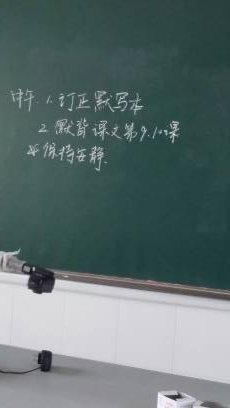 中午. 1. 订正默写本
2. 默背课文第9.10课
※保持安静.